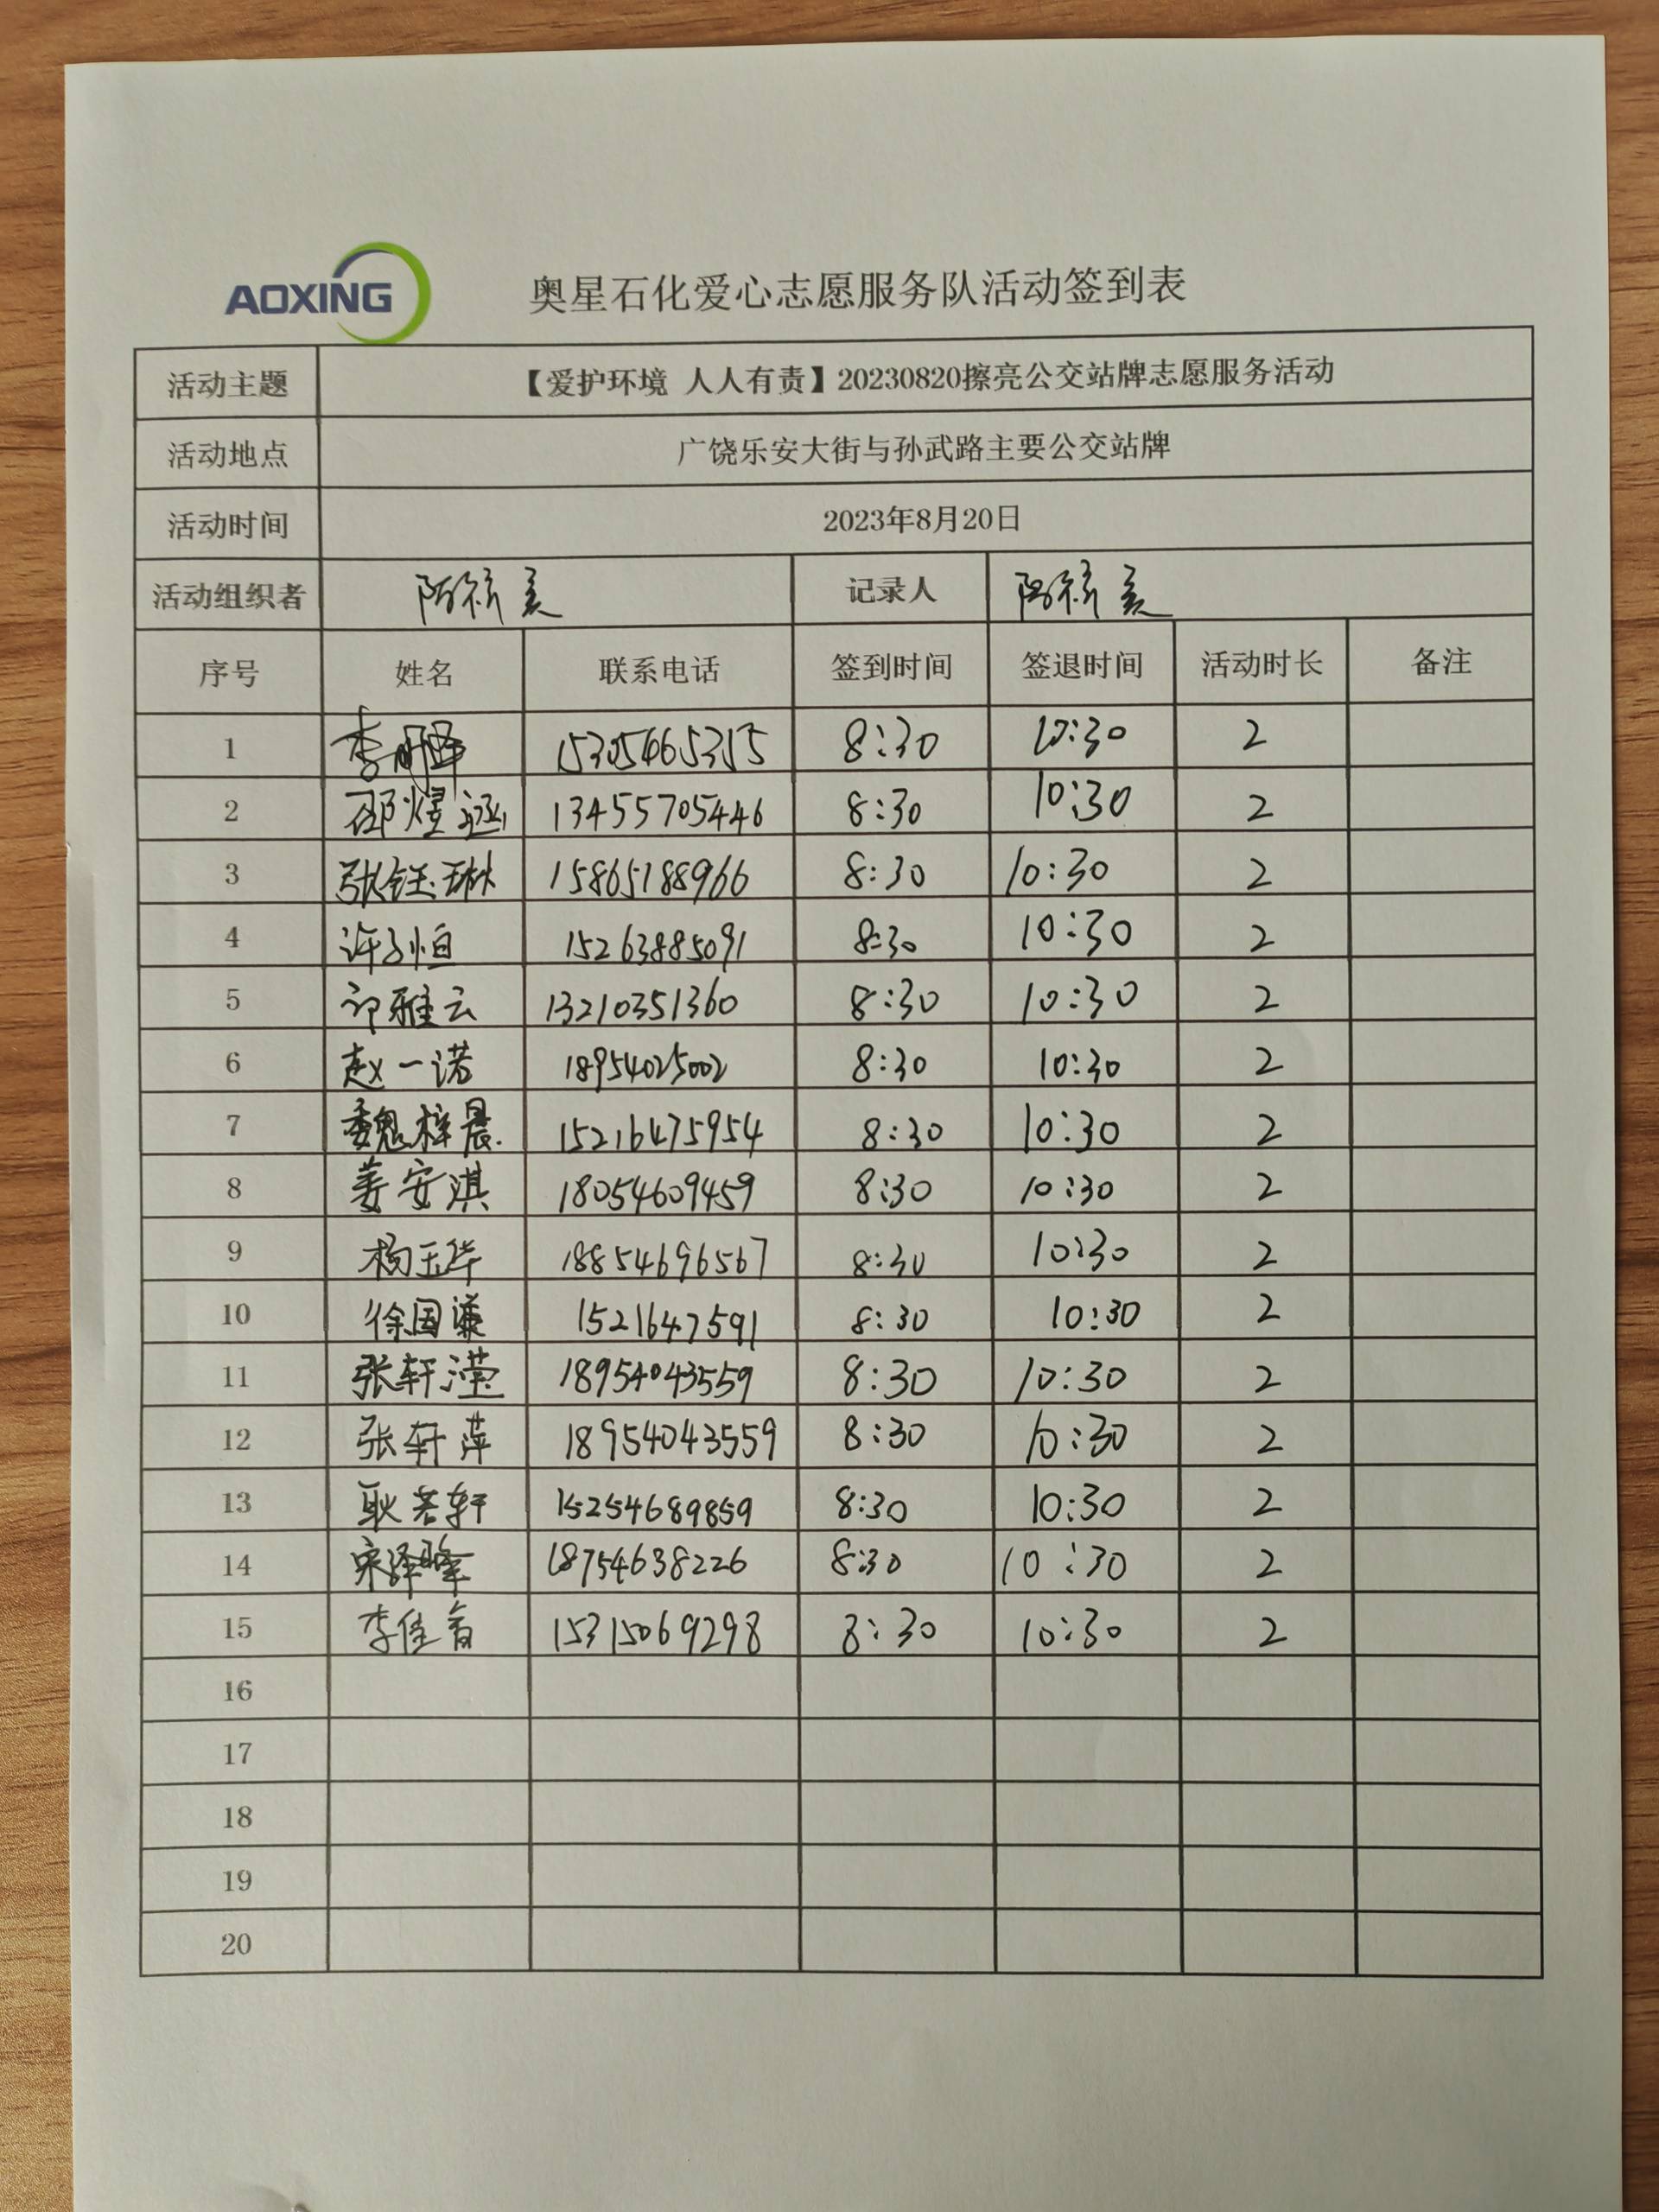 AOXING 奥星石化爱心志愿服务队活动签到表
活动主题 【爱护环境 人人有责】20230820擦亮公交站牌志愿服务活动
活动地点 广饶乐安大街与孙武路主要公交站牌
活动时间 2023年8月20日
活动组织者 记录人
序号 姓名 联系电话 签到时间 签退时间 活动时长 备注
1 15305465315 8:30 10:30 2
2 13455705446 8:30 10:30 2
3 张钰琳 15865188966 8:30 10:30 2
4 许子恒 15263885091 8:30 10:30 2
5 雅云 13210351360 8:30 10:30 2
6 赵一诺 18954025002 8:30 10:30 2
7 魏梓晨 15216475954 8:30 10:30 2
8 姜安淇 18054609459 8:30 10:30 2
9 杨玉华 18854696567 8:30 10:30 2
10 徐国谦 1521647591 8:30 10:30 2
11 张轩滢 18954043559 8:30 10:30 2
12 张轩萍 18954043559 8:30 10:30 2
13 耿若轩 15254689859 8:30 10:30 2
14 宋泽峰 18754638226 8:30 10:30 2
15 李佳育 15315069298 8:30 10:30 2
16
17
18
19
20